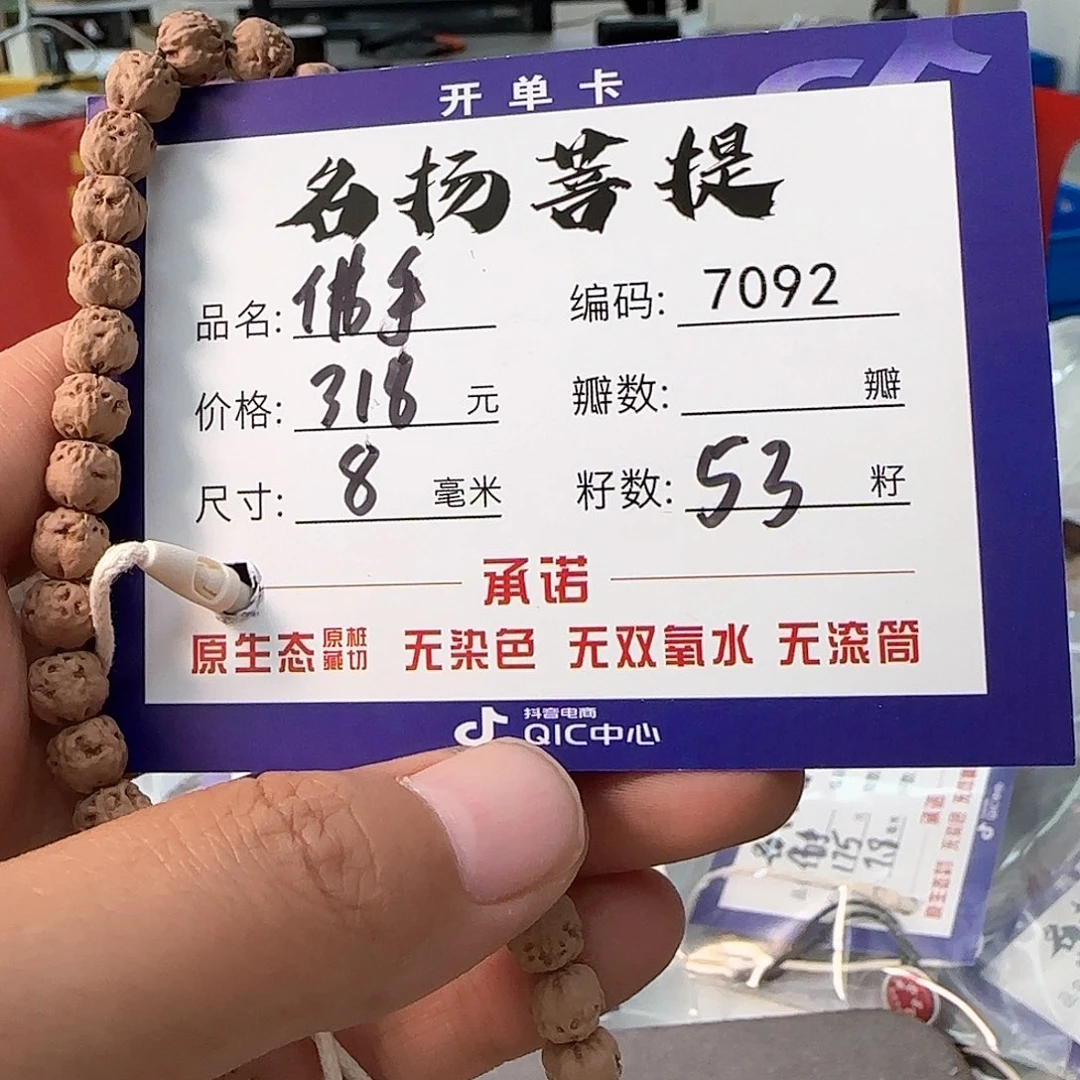 开单卡
名扬菩提
品名: 佛手 编码: 7092
价格: 318 元 瓣数: 瓣
尺寸: 8 毫米 籽数: 53 籽
承诺
原生态 原桩藏切 无染色 无双氧水 无滚筒
抖音电商
QIC中心
佛手 175 7.8